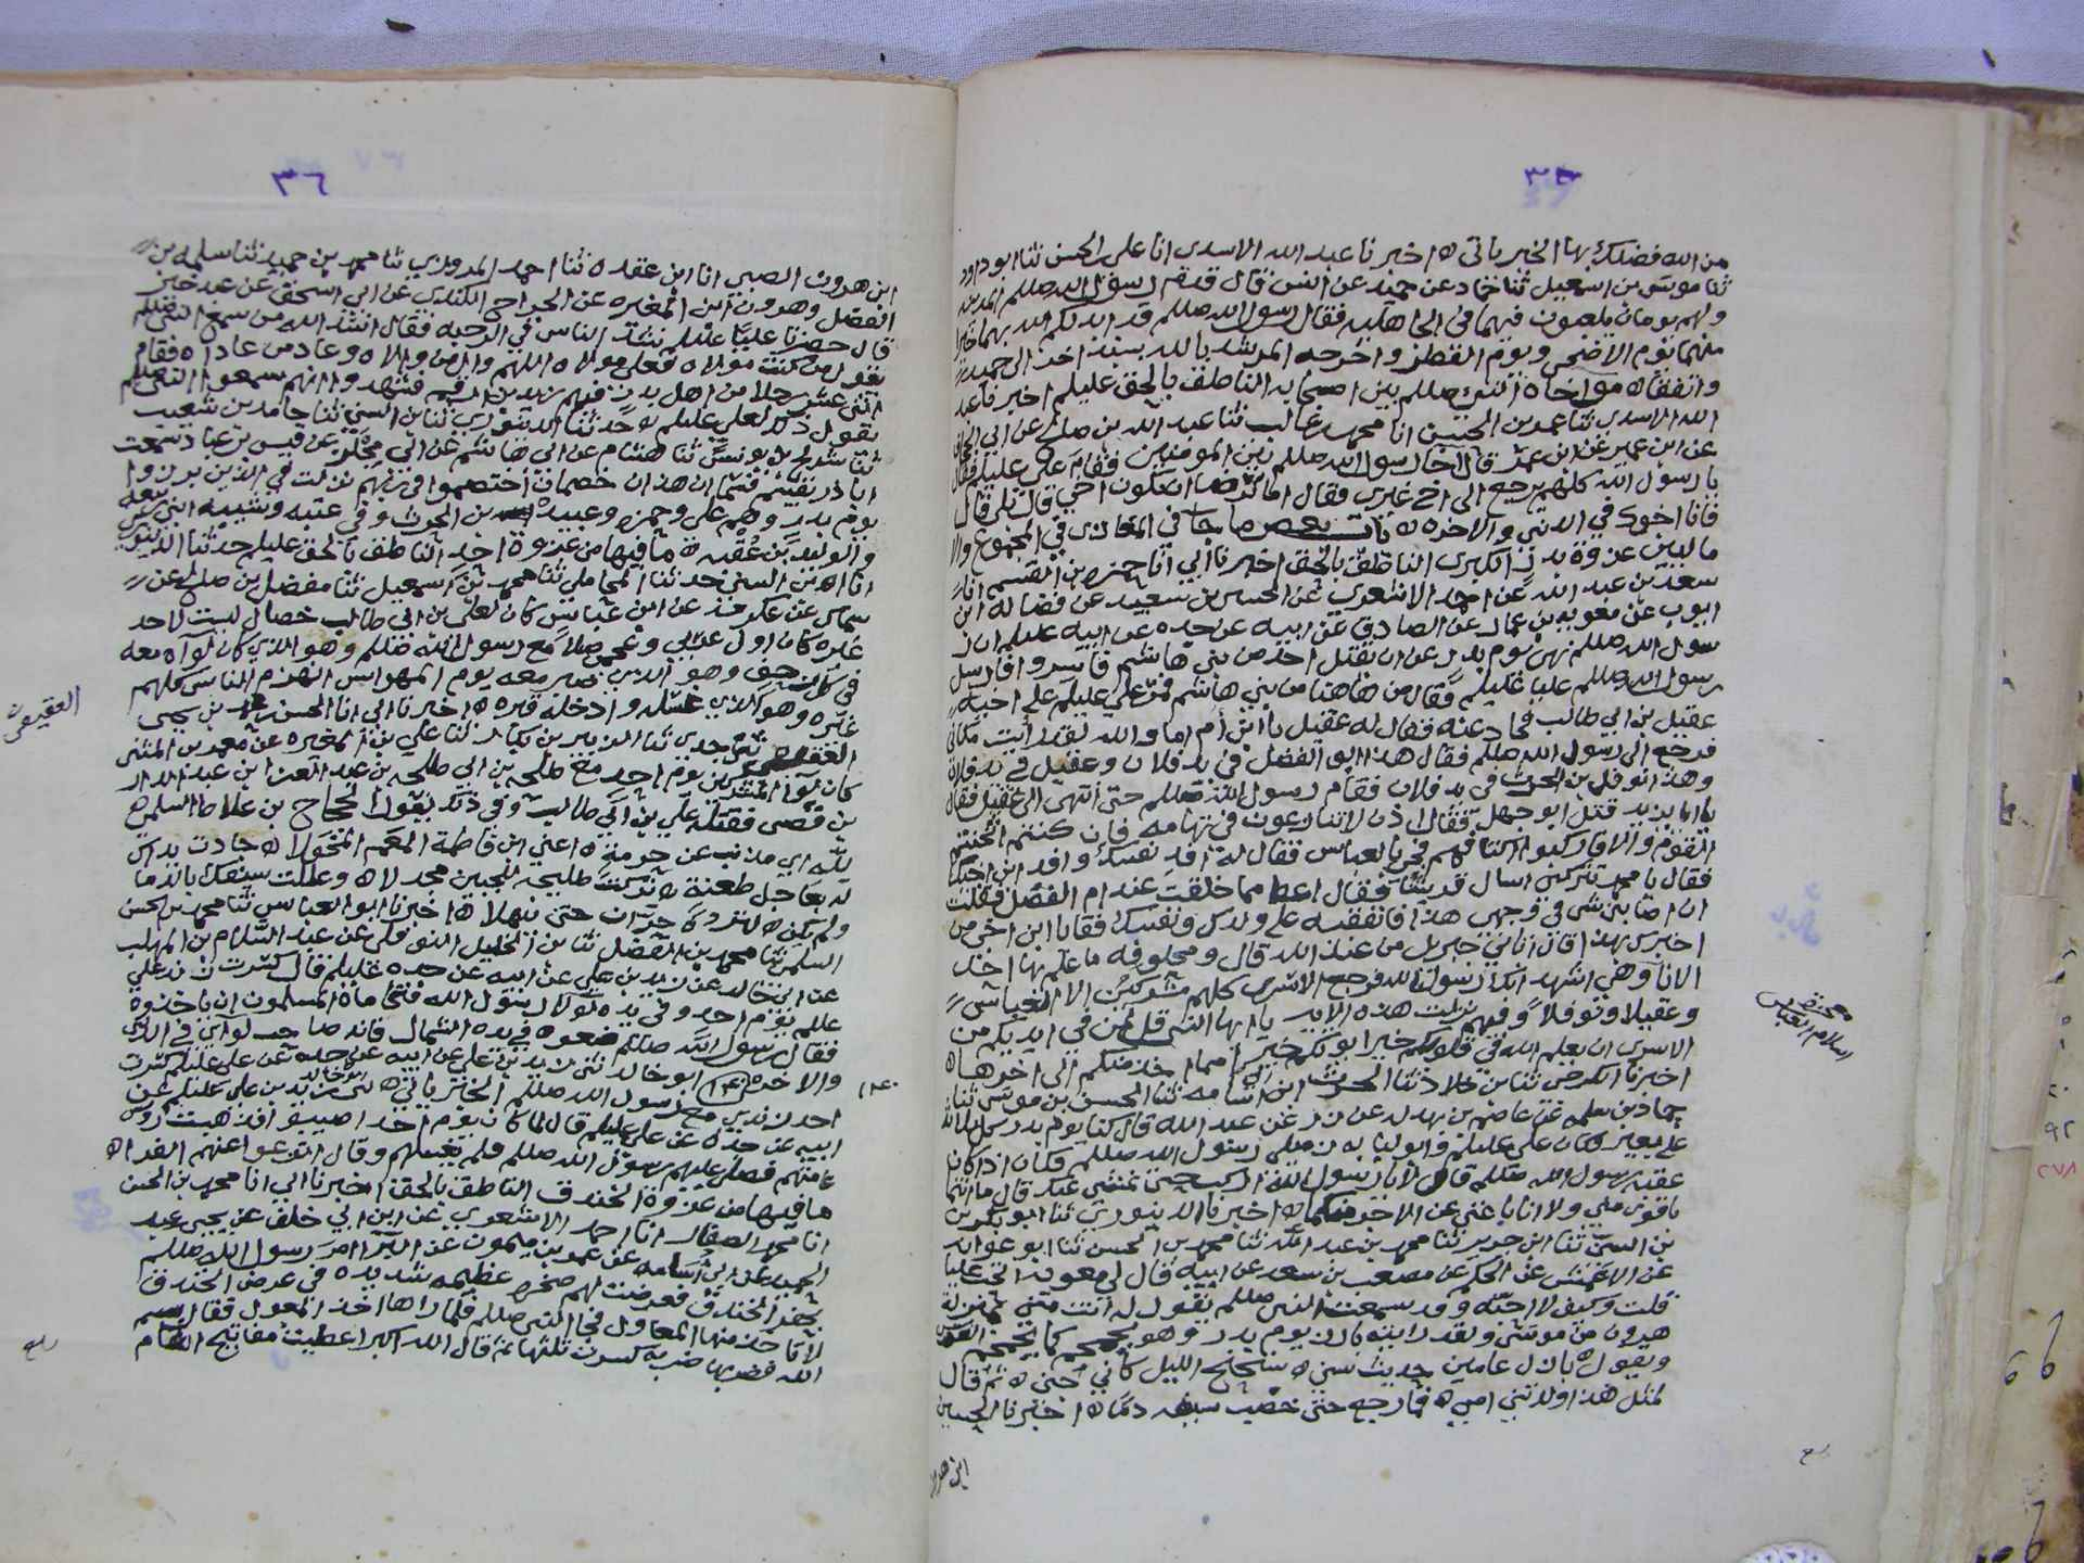 من الله فضلك بها الخبر باتي ه اخبرنا عبد الله الاسدى انا على الحسن ثنا ابو داود
ثنا موسى بن اسمعيل ثنا حماد عن حميد عن انس قال قدم رسول الله صللم المدينه
ولهم يومان يلعبون فيهما في الجاهليه فقال رسول الله صللم قد ابدلكم الله بهما خيرا
منهما يوم الاضحى ويوم الفطر واخرجه المرشد بالله بسنده
واتفقاه مواخاة النبي صللم بين اصحابه الناطق بالحق عليلم اخبرنا عبد
الله الاسدي ثنا عمر بن الحسين انا محمد بن غالب ثنا عبد الله بن صالح عن ابي
عن ابن عمير عن ابن عمر قال اخا رسول الله صللم بين المومنين فقام على عليلم فقال
يا رسول الله كلهم يرجع الى اخ غيري فقال اما ترضا ان تكون اخي قال بلى قال
فانا اخوك في الدنيا والاخره ه باب بعض ما جا في المغازى في المجموع والا
مالبين غزوة بدر الكبرى الناطق بالحق اخبرنا ابي انا حمزه بن القسم انا
سعد بن عبد الله عن احمد الاشعري عن الحسين بن سعيد عن فضاله ابن
ايوب عن معويه بن عمار عن الصادق عن ابيه عن جده عن ابيه عليلم ان ر
سول الله صللم نهى يوم بدر عن ان يقتل احد من بني هاشم فاسروا فارسل
رسول الله صللم عليا عليلم فقال من هاهنا من بني هاشم فمر علي عليلم على اخيه
عقيل بن ابي طالب فحاد عنه فقال له عقيل يا ابن ام اما والله لقد رأيت مكاني
فرجع الى رسول الله صللم فقال هذا ابو الفضل في يد فلان وعقيل في يد فلان
وهذا نوفل بن الحرث في يد فلان فقام رسول الله صللم حتى انتهى الى عقيل فقال
يا ابا يزيد قتل ابو جهل فقال اذن لا تنازعون في تهامه فان كنتم اثخنتم
القوم والا فاركبوا اكتافهم فجئ بالعباس فقال له افد نفسك وافد ابن اخيك
فقال يا محمد تتركني اسال قريشا فقال اعط مما خلفت عند ام الفضل فقلت
ان اصابني شى في وجهي هذا فانفقيه على ولدك ونفسك فقال يا ابن اخي من
اخبرك بهذا قال اتاني جبريل من عند الله قال ومحلوفه ما علم بها احد
الا انا وهي اشهد انك رسول الله فرجع الاسرى كلهم مشركين الا العباس
وعقيلا ونوفلا وفيهم نزلت هذه الايه يا ايها النبي قل لمن في ايديكم من
الاسرى ان يعلم الله في قلوبكم خيرا يوتكم خيرا مما اخذ منكم الى اخرها ه
اخبرنا الكرخي ثنا بن خلاد ثنا الحرث ابن ابي اسامه ثنا الحسن بن موسى ثنا
حماد بن سلمه عن عاصم بن بهدله عن زر عن عبد الله قال كنا يوم بدر كل ثلاثه
على بعير فكان علي عليلم وابو لبابه زميلى رسول الله صللم فكان اذا كان
عقبه رسول الله صللم قالا يا رسول الله اركب حتى نمشي عنك قال ما انتما
باقوى مني ولا انا باغنى عن الاجر منكما ه اخبرنا الدينوري ثنا ابو بكر بن
بن السني ثنا ابن جرير ثنا محمد بن عبد الله ثنا محمد بن الحسن ثنا ابو عوانه
عن الاعمش عن الحكم عن مصعب بن سعد عن ابيه قال لي معويه اتحب عليا
قلت وكيف لا احبه وقد سمعت النبي صللم يقول له انت مني بمنزلة
هرون من موسى ولقد رايته بارز يوم بدر وهو يحمحم كما يحمحم الفرس
ويقول ه بازل عامين حديث سني ه سنحنح الليل كاني جني ه ثم قال
لمثل هذا ولدتني امي ه فما رجع حتى خضب سيفه دما ه اخبرنا الحسين
ابن هرو
محنط
اسلام العباس
٣٦
ابن هرون الضبي انا ابن عقده ثنا احمد المروزي ثنا محمد بن حميد ثنا سلمه بن
الفضل وهرون ابن المغيره عن الجراح الكندي عن ابي اسحق عن عبد خير
قال حضرنا عليا عليلم نشد الناس في الرحبه فقال انشد الله من سمع النبي صللم
يقول من كنت مولاه فعلي مولاه اللهم وال من والاه وعاد من عاداه فقام
اثنى عشر رجلا من اهل بدر فيهم زيد بن ارقم فشهدوا انهم سمعوا النبي صللم
يقول ذلك لعلي عليلم ه حدثنا الدينوري ثنا بن السني ثنا حامد بن شعيب
ثنا شريح بن يونس ثنا هشام عن ابي هاشم عن ابي مجلز عن قيس بن عباد سمعت
ابا ذر يقسم قسما ان هذان خصمان اختصموا في ربهم نزلت في الذين برزوا
يوم بدر وهم على وحمزه وعبيده بن الحرث وفي عتبه وشيبه ابني ربيعه
والوليد بن عقبه ه ما فيها من غزوة احد الناطق بالحق عليلم حدثنا الدينوري
انا ابن السني حدثنا المحاملي ثنا محمد بن اسمعيل ثنا مفضل بن صالح عن
سماك عن عكرمه عن ابن عباس كان لعلي بن ابي طالب خصال ليست لاحد
غيره كان اول عربي وعجمي صلا مع رسول الله صللم وهو الذي كان لوآه معه
في كل زحف وهو الذي صبر معه يوم المهراس انهزم الناس كلهم
غيره وهو الذي غسله وادخله قبره ه اخبرنا ابي انا الحسن بن محمد بن يحيى
العقيقي ثنى جدي ثنا الزبير بن بكار ثنا علي بن المغيره عن معمر بن المثنى
كان لوآ المشركين يوم احد مع طلحه بن ابي طلحه بن عبد العزا بن عبد الدار
بن قصى فقتله علي بن ابي طالب وفي ذلك يقول الحجاج بن علاط السلمي
لله اي مذبب عن حرمة ه اعني ابن فاطمة المعم المخولا ه جادت يداك
له بعاجل طعنة ه تركت طليحه للجبين مجدلا ه وعللت سيفك بالدما
ولم تكن ه لترده حران حتى ينهلا ه اخبرنا ابو العباس ثنا محمد بن الحسن
السلمي ثنا محمد بن الفضل ثنا بن الخليل النوفلي عن عبد السلام بن المهلب
عن ابي خالد عن زيد بن علي عن ابيه عن جده عليلم قال كسرت زند علي
عللم يوم احد وفي يده لوآ رسول الله فتحاماه المسلمون ان ياخذوه
فقال رسول الله صللم ضعوه في يده الشمال فانه صاحب لوآئي في الدنيا
والاخره ابو خالد ثنى زيد بن علي عن ابيه عن جده عن علي عليلم كسرت
احد زندي مع رسول الله صللم الخبر باتي ه ابو خالد ثنى زيد بن على عليلم عن
ابيه عن جده عن علي عليلم قال لما كان يوم احد اصيبوا فذهبت رؤس
عامتهم فصلى عليهم رسول الله صللم ولم يغسلهم وقال انزعوا عنهم الفرا ه
ما فيها من غزوة الخندق الناطق بالحق اخبرنا ابي انا محمد بن الحسن
انا محمد الصفار انا احمد الاشعري عن ابن ابي خلف عن يحيى عبد
الحميد عن ابي اسامه عن عمرو بن ميمون عن البرآ امر رسول الله صللم
بحفر الخندق فعرضت لهم صخره عظيمه شديده في عرض الخندق
لا تاخذ منها المعاول فجا النبي صللم فلما راها اخذ المعول فقال بسم
الله فضربها ضربه كسرت ثلثها ثم قال الله اكبر اعطيت مفاتيح الشام
العقيقي